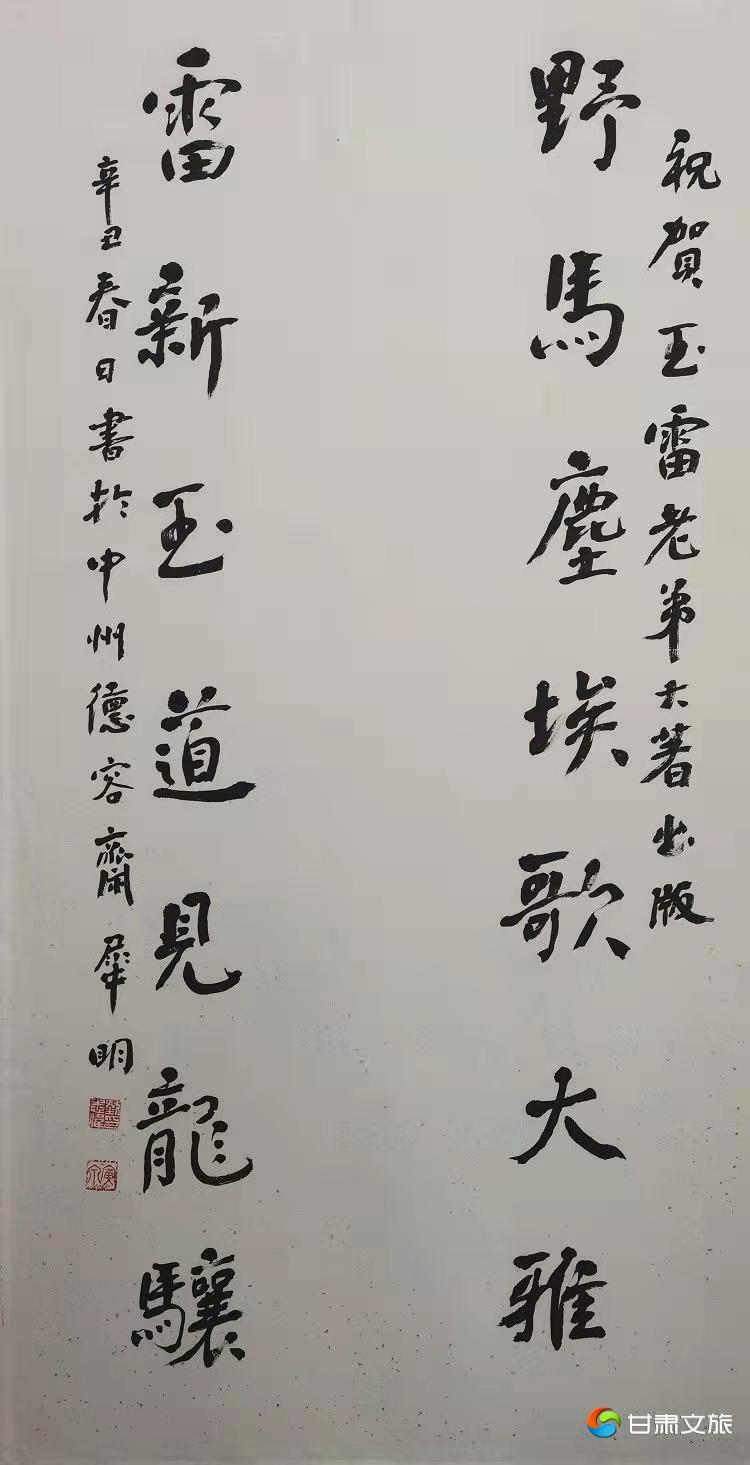 祝賀玉雷老弟大著出版
野馬塵埃歌大雅
雷新玉道見龍驤
辛丑春日書於中州德容齋犀明
甘肃文旅